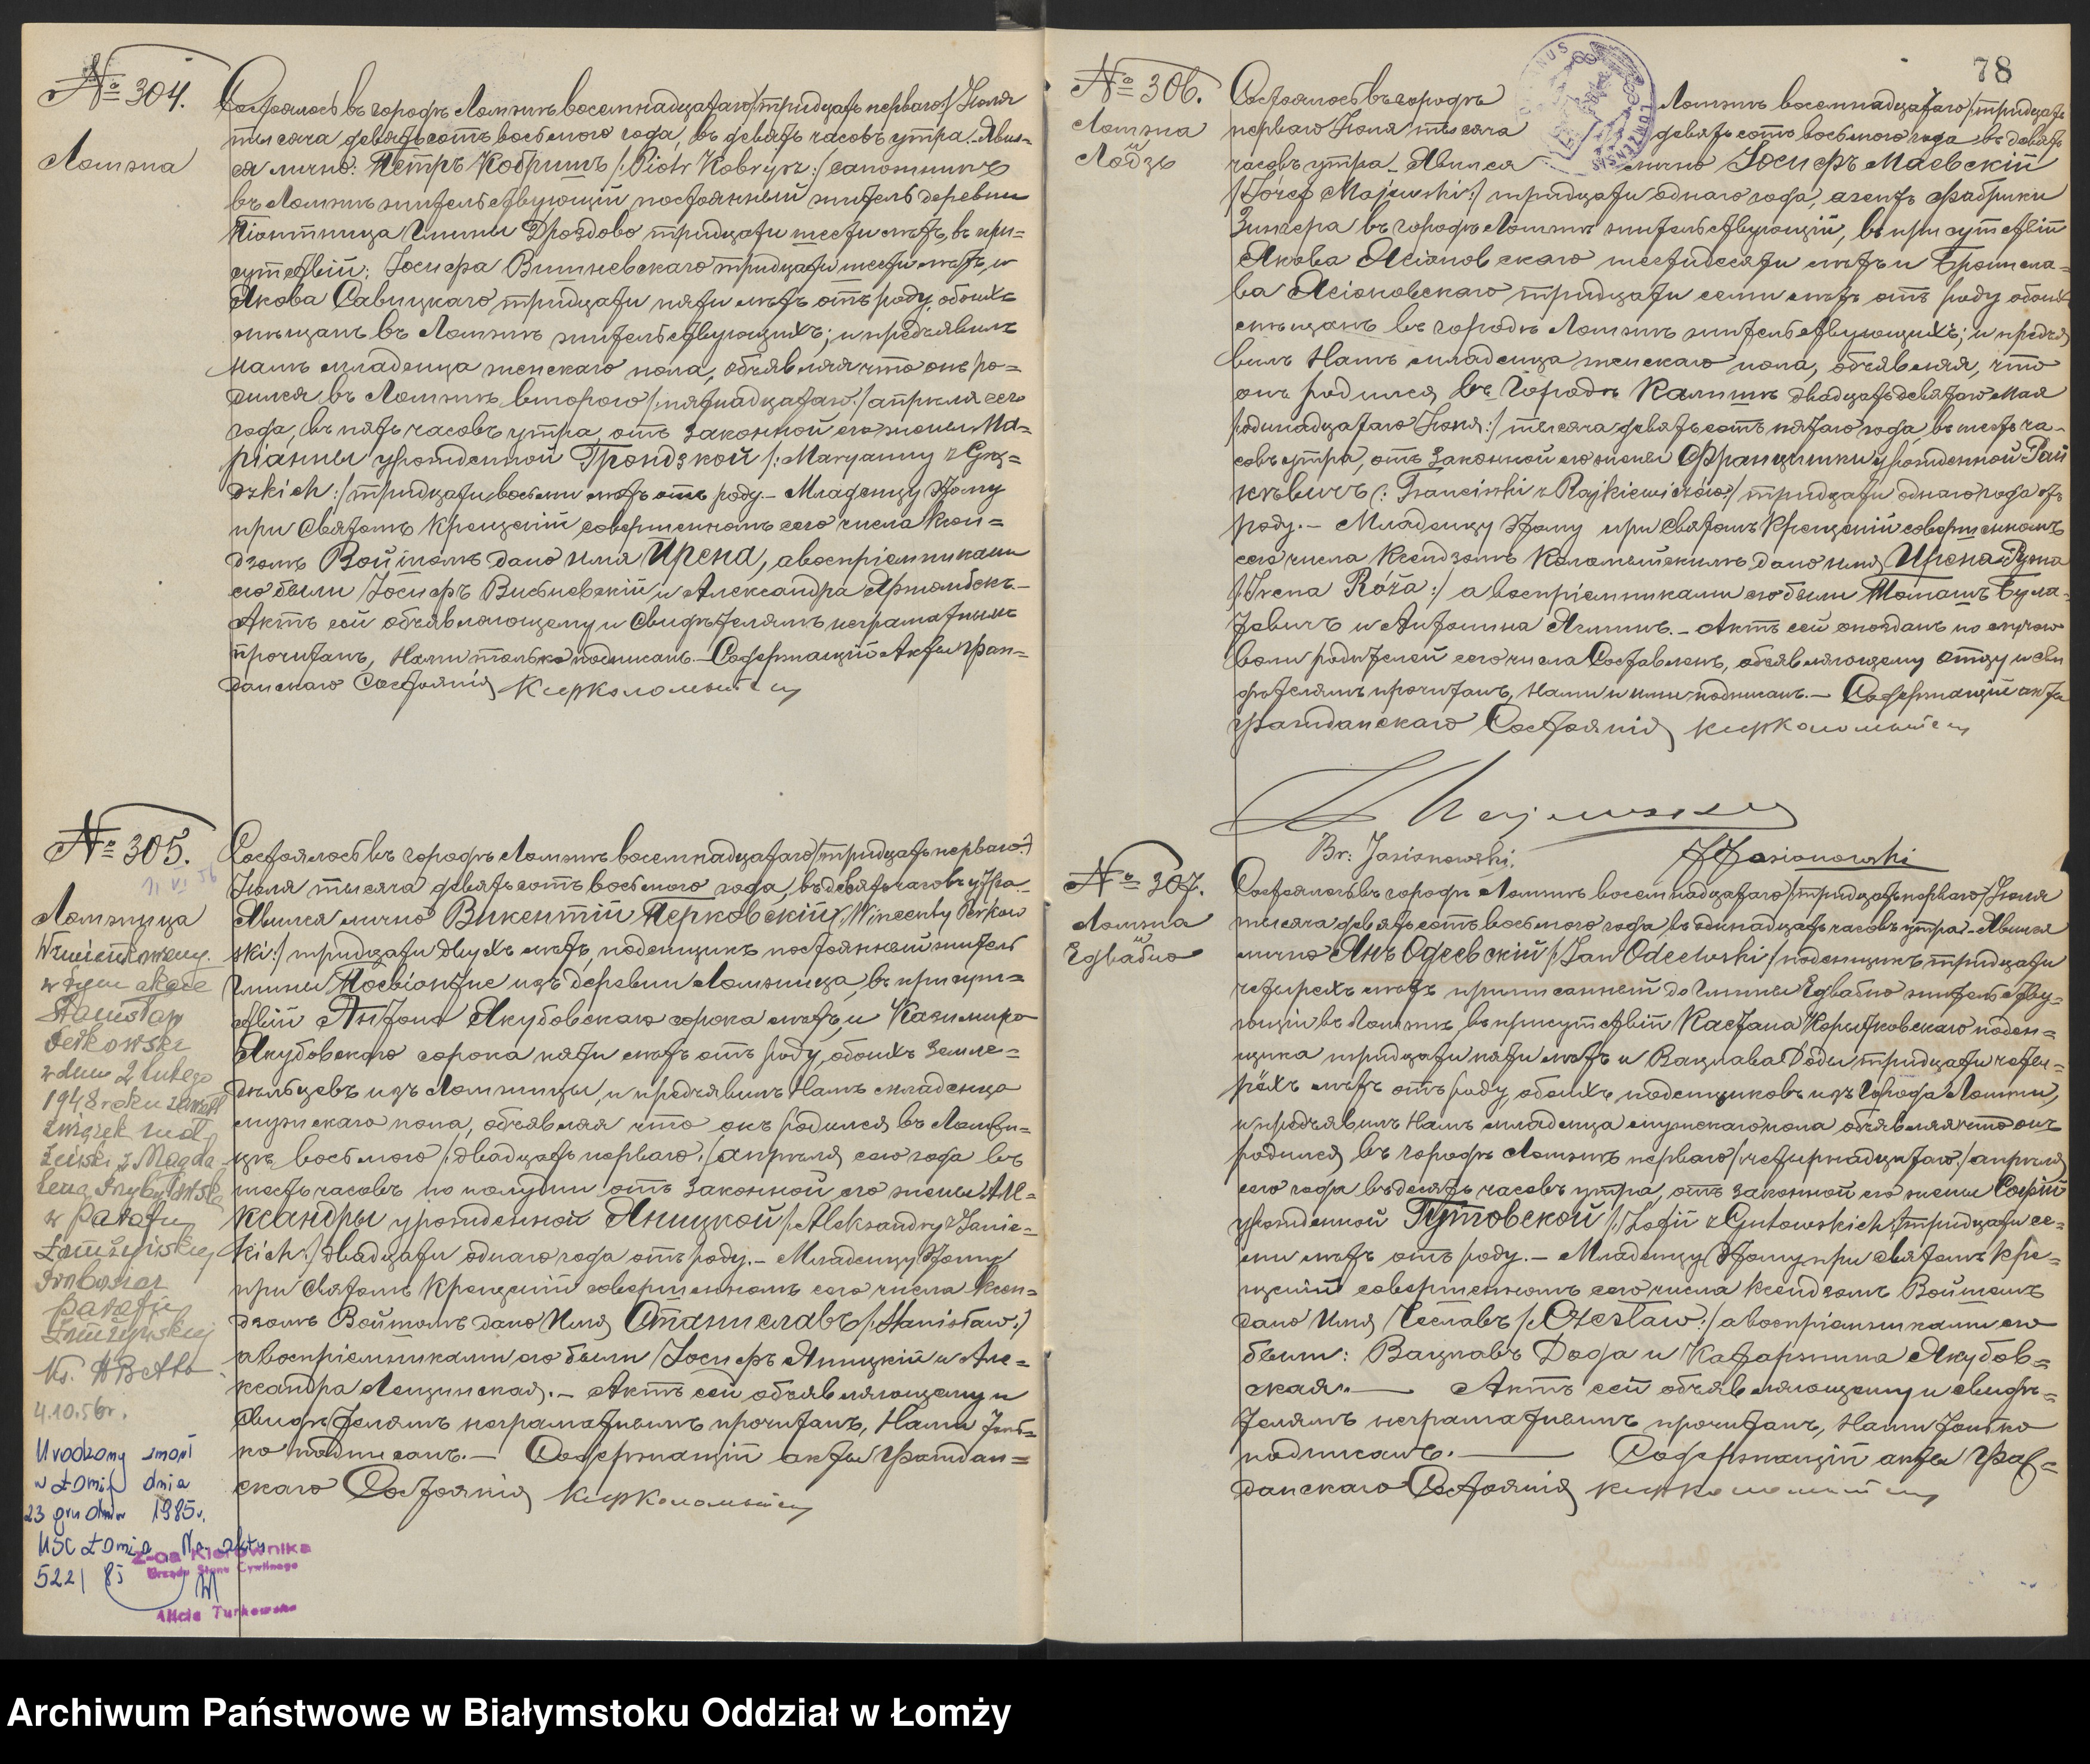 № 304.
Ломжа
Состоялось въ городѣ Ломжѣ восемнадцатаго /тридцать перваго/ Іюля
тысяча девятьсотъ восьмого года, въ девять часовъ утра. Явил=
ся лично: Петръ Кобришъ /: Piotr Kobrysz:/ сапожникъ
въ Ломжѣ жительствующій постоянный житель деревни
Піонтница Гмины Дроздово тридцати шести лѣтъ, въ при=
сутствіи: Іосифа Вишневскаго тридцати шести лѣтъ, и
Якова Савицкаго тридцати пяти лѣтъ отъ роду, обоихъ
мѣщанъ въ Ломжѣ жительствующихъ; и предъявилъ
Намъ младенца женскаго пола, объявляя что онъ ро=
дился въ Ломжѣ второго /:пятнадцатаго:/ апрѣля сего
года, въ пять часовъ утра, отъ законной его жены Ма=
ріанны урожденной Грондзкой /: Maryanny z Grą=
dzkich:/ тридцати восьми лѣтъ отъ роду. – Младенцу этому
при Святомъ Крещеніи совершенномъ сего числа Ксен=
дзомъ Войтомъ дано имя Ирена, а воспріемниками
его были Іосифъ Висьневскій и Александра
Актъ сей объявляющему и Свидѣтелямъ неграматнымъ
прочитанъ, Нами только подписанъ. – Содержащій Акты Граж=
данскаго Состоянія
№ 305.
Ломжица
Состоялось въ городѣ Ломжѣ восемнадцатаго /тридцать перваго:/
Іюля тысяча девятьсотъ восьмого года, въ девять часовъ утра.
Явился лично Викентій Перковскій /: Wincenty Perkow
ski:/ тридцати двухъ лѣтъ, поденщикъ постоянный житель
Гмины изъ деревни Ломжица, въ присут=
ствіи Антона Якубовскаго сорока лѣтъ, и Казимира
Якубовскаго сорока пяти лѣтъ отъ роду, обоихъ земле=
дѣльцевъ изъ Ломжицы, и предъявилъ Намъ младенца
мужскаго пола, объявляя что онъ родился въ Ломжи=
цѣ восьмого /:двадцать перваго:/ апрѣля сего года въ
шесть часовъ по полудни отъ законной его жены Але=
ксандры урожденной Яницкой /: Aleksandry z Janic=
kich:/ двадцати одного года отъ роду. – Младенцу этому
при Святомъ Крещеніи совершенномъ сего числа Ксен=
дзомъ Войтомъ дано Имя Станиславъ /: Stanisław:/
а воспріемниками его были Іосифъ Яницкій и Але=
ксандра Лещинская. – Актъ сей объявляющему и
Свидѣтелямъ неграматнымъ прочитанъ, Нами толь=
ко подписанъ. – Содержащій акты Граждан=
скаго Состоянія
11 VI 56
Wzmieniony
w tym akcie
Stanisław
Perkowski
w dniu 2 lutego
1948 roku zawarł
związek mał
żeński z Magda
leną
w Parafii
Łomżyńskiej
Proboszcz
Parafii
Łomżyńskiej
Ks.
4.10.56r.
Urodzony zmarł
w Łomży dnia
23 grudnia 1985r.
USC Łomża Nr aktu
522/85
Z-ca Kierownika
Urzędu Stanu Cywilnego
Alicja Turkowska
78
№ 306.
Ломжа
и
Лодзь
Состоялось въ городѣ Ломжѣ восемнадцатаго /тридцать
перваго Іюля тысяча девятьсотъ восьмого года въ девять
часовъ утра. Явился лично Іосифъ Маевскій
/Józef Majewski:/ тридцати одного года, агентъ фабрики
Зингера въ городѣ Ломжѣ жительствующій, въ присутствіи
Якова Ясіоновскаго шестидесяти лѣтъ и Бронисла=
ва Ясіоновскаго тридцати семи лѣтъ отъ роду обоихъ
мѣщанъ въ городѣ Ломжѣ жительствующихъ; и предъя
вилъ Намъ младенца женскаго пола, объявляя, что
онъ родился въ Городѣ Калишѣ двадцать девятаго Мая
/одинадцатаго Іюня:/ тысяча девятьсотъ пятаго года, въ шесть ча=
совъ утра, отъ законной его жены Францишки урожденной Рай
кѣвичъ /: Franciszki z Rajkiewiczów:/ тридцати одного года отъ
роду. – Младенцу этому при Святомъ Крещеніи совершенномъ
сего числа Ксендзомъ Коломыйскимъ дано имя Ирена Ружа
/:Irena Róża:/ а воспріемниками его были Томашъ Була=
и Антонина Актъ сей опозданъ по случаю
воли родителей сего числа Составленъ, объявляющему отцу и сви
дѣтелямъ прочитанъ, Нами и ими подписанъ. – Содержащій акты
Гражданскаго Состоянія
J Majewski
Br: Jasionowski.
J Jasionowski
№ 307.
Ломжа
и
Едвабно
Состоялось въ городѣ Ломжѣ восемнадцатаго /:тридцать перваго/ Іюля
тысяча девятьсотъ восьмого года въ одинадцать часовъ утра. Явился
лично Янъ Одеевскій /: Jan Odeewski:/ поденщикъ тридцати
четырехъ лѣтъ приписанный до Гмины Едвабно жительству=
ющій въ Ломжѣ, въ присутствіи Каетана поден=
щика тридцати пяти лѣтъ и Вацлава Доды тридцати четы=
рёхъ лѣтъ отъ роду, обоихъ поденщиковъ изъ Города Ломжи,
и предъявилъ Намъ младенца мужскаго пола объявляя что онъ
родился въ городѣ Ломжѣ перваго /:четырнадцатаго:/ апрѣля
сего года въ десять часовъ утра, отъ законной его жены Софіи
урожденной Гутовской /: Zofii z Gutowskich:/ тридцати се=
ми лѣтъ отъ роду. – Младенцу этому при Святомъ Кре=
щеніи совершенномъ сего числа Ксендзомъ Войтомъ
дано Имя Чеславъ /: Czesław:/ а воспріемниками его
были: Вацлавъ Дода и Катаржина Якубов=
ская. — Актъ сей объявляющему и свидѣ=
телямъ неграматнымъ прочитанъ, Нами только
подписанъ. — Содержащій акты Граж=
данскаго Состоянія
Archiwum Państwowe w Białymstoku Oddział w Łomży